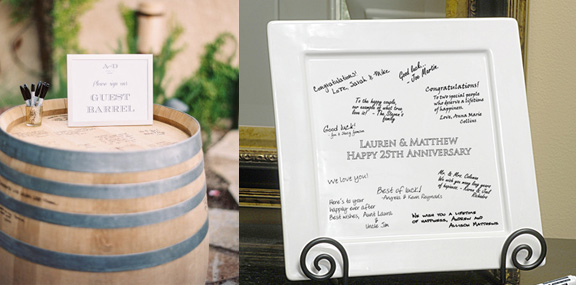 Please sign our
GUEST
BARREL
Congratulations!
Love, Sarah & Mike
Good luck...
- Joe Martin
Congratulations!
To two special people
who deserve a lifetime
of happiness.
Love, Anna Marie
Collins
To the happy couple,
love is!
family
Good luck!
LAUREN & MATTHEW
HAPPY 25TH ANNIVERSARY
We love you!
Best of luck!
Angela & Kevin Reynolds
Mr. & Mrs. Coleman
We wish you many long years
of happiness.
Here's to your
happily ever after
Best wishes, Aunt Laura
&
Uncle Jim
We wish you a lifetime
of happiness, Andrew and
Allison Matthews